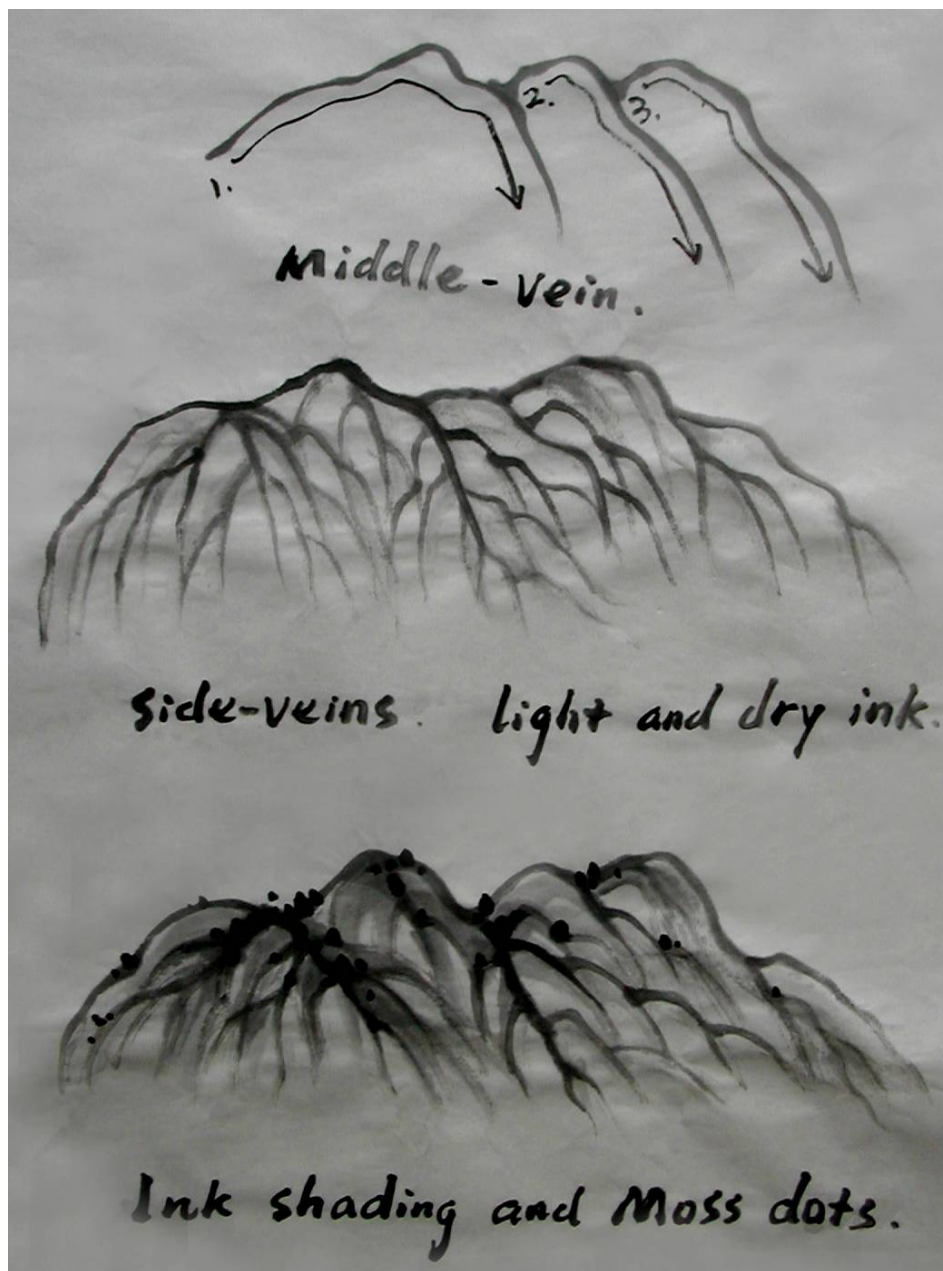 1.
2.
3.
Middle-vein.
side-veins. light and dry ink.
Ink shading and Moss dots.